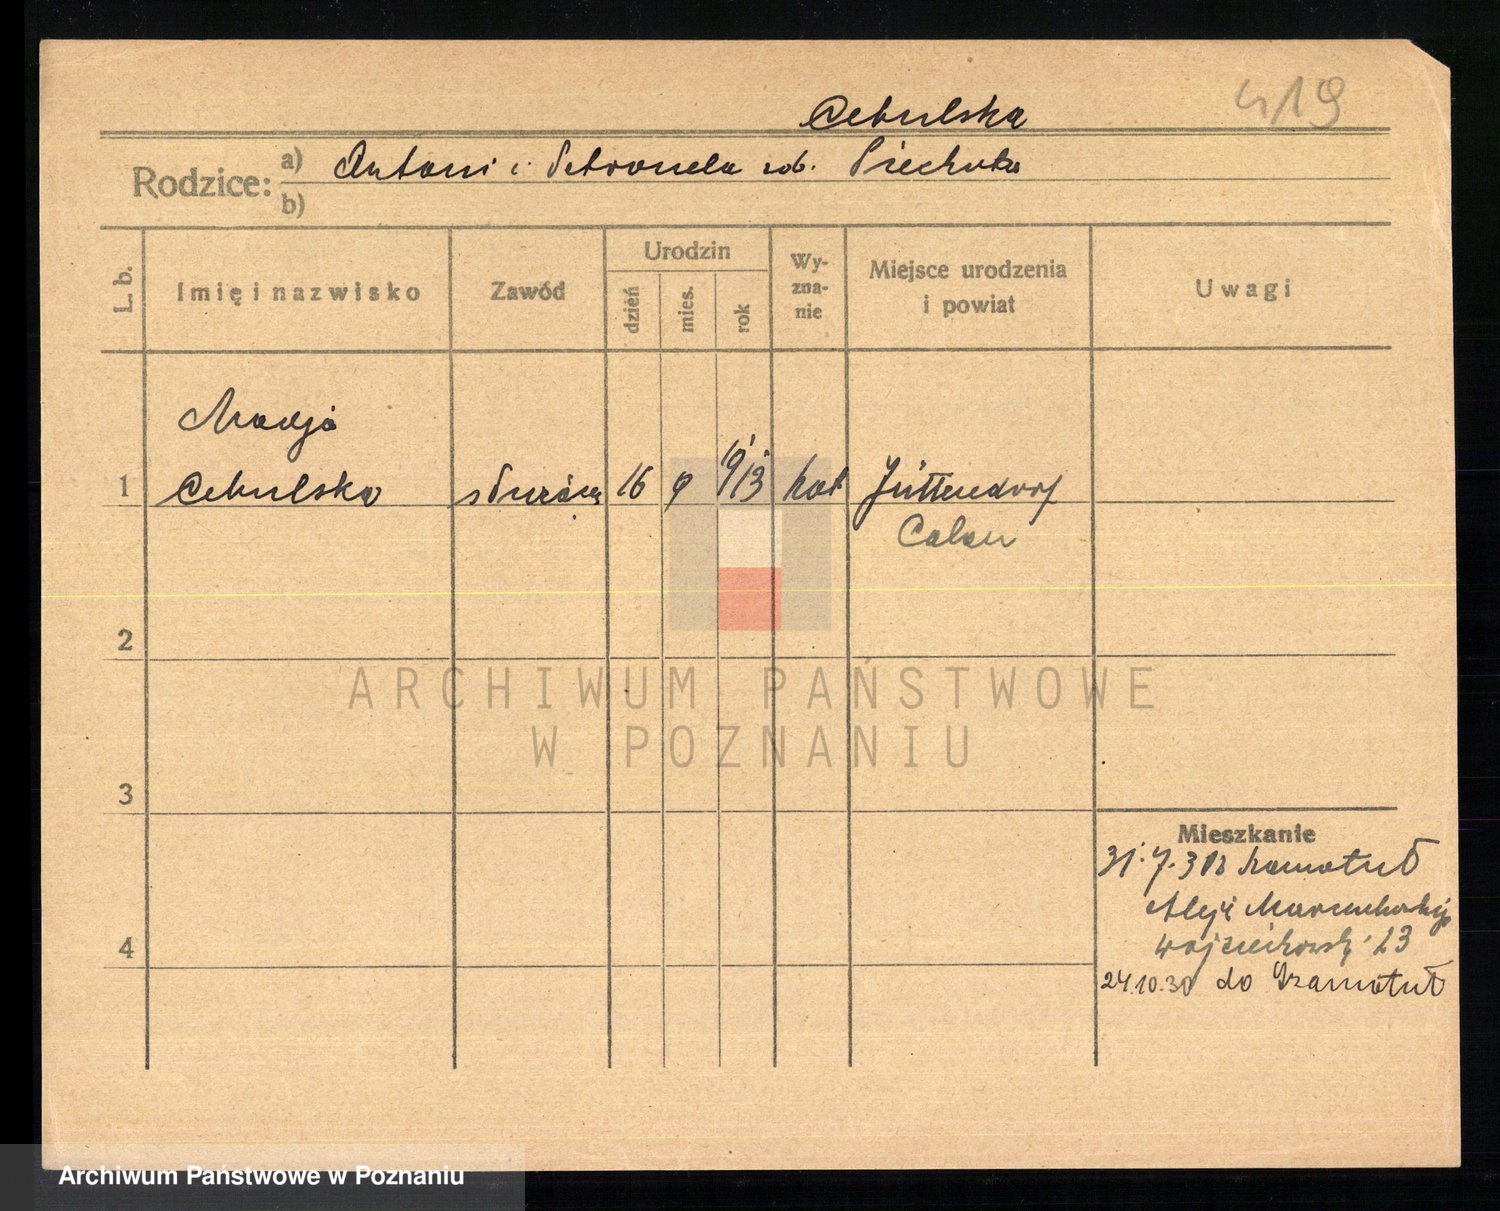 419
Cebulska
Rodzice: a) Antoni i Petronela rob. Piechota
b)
L. b. Imię i nazwisko Zawód Urodzin dzień mies. rok Wy-zna-nie Miejsce urodzenia i powiat Uwagi
Marja
1 Cebulska służąca 16 9 1913 kat. Jüttendorf
Calau
2
ARCHIWUM PAŃSTWOWE
W POZNANIU
3
Mieszkanie
31.7.30 z Szamotuł
Aleje Marcinkowskiego
4 Wojciechowski 23
24.10.30 do Szamotuł
Archiwum Państwowe w Poznaniu